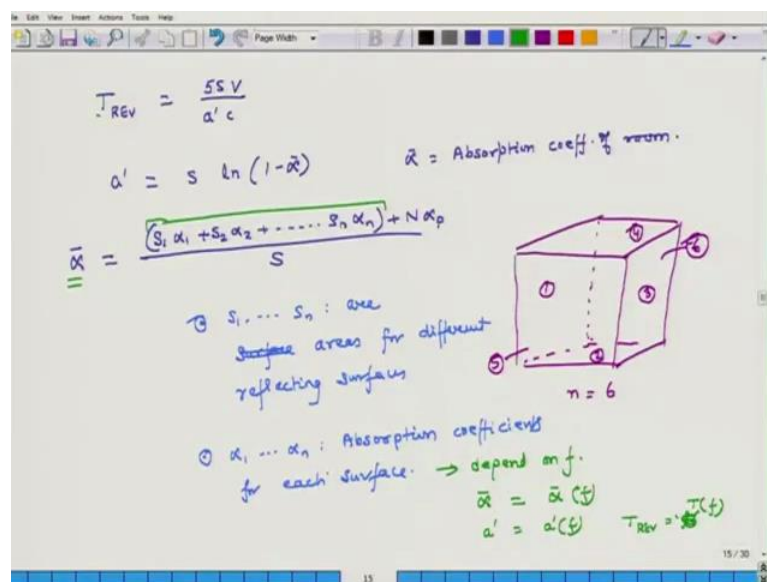 Edit View Insert Actions Tools Help
Page Width
T_REV = 55 V / a' c
a' = S ln (1-ᾱ)
ᾱ = Absorption coeff. of room.
ᾱ = (S₁ α₁ + S₂ α₂ + ..... Sₙ αₙ) + N αₚ / S
S₁ .... Sₙ : are
areas for different
reflecting surfaces
α₁ ... αₙ : Absorption coefficients
for each surface. → depend on f.
ᾱ = ᾱ (f)
a' = a'(f) T_REV = T(f)
① ② ③ ④ ⑤ ⑥
n = 6
15 / 30
15